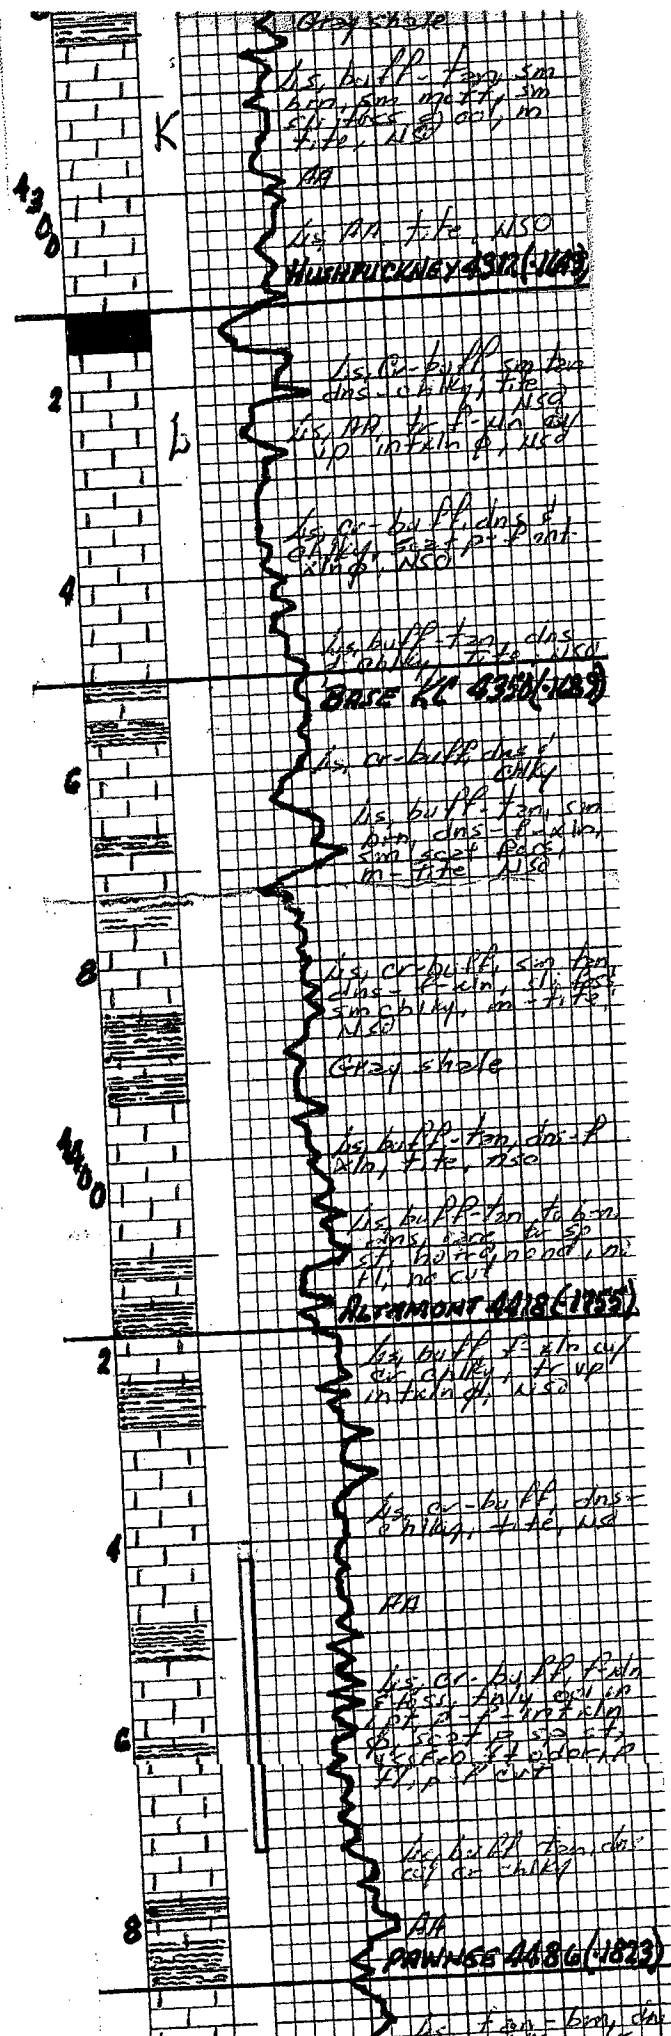 Gray shale
Ls, buff-tan, sm
brn, sm mott, sm
sli foss & ool, m
tite, NSO
K
AA
4300
Ls, AA, tite, NSO
HUSHPUCKNEY 4312(-1649)
Ls, Cr-buff sm tan
dns-chlky, tite
NSO
2
Ls, AA, tr f-xln w/
ip intxln φ, NSO
L
Ls, cr-buff, dns &
chlky, scat p-f int-
xln φ, NSO
4
Ls, buff-tan, dns
& chlky, Tite, NSO
BASE KC 4350(-1689)
Ls, cr-buff, dns &
chlky
6
Ls, buff-tan, sm
brn, dns-f-xln,
sm scat foss,
m-tite NSO
8
Ls, cr-buff, sm tan
dns-f-xln, sli foss
sm chlky, m-tite,
NSO
Gray shale
4400
Ls, buff-tan, dns-f
xln, tite, NSO
Ls, buff-tan to brn
dns, rare tr sp
st, no odor, no
fl, no cut
ALTAMONT 4418(-1755)
2
Ls, buff, f-xln w/
cr chlky, tr vp
intxln φ, NSO
Ls, cr-buff, dns-
chlky, tite, NSO
4
AA
Ls, cr-buff, f-xln
foss, tnly ool in
pt, p-f-intxln
φ, scat p sp st,
ft odor, p
fl, p-f cut
6
Ls, buff tan, dns
w/ cr chlky
8
AA
PAWNEE 4486(-1823)
Ls, tan-brn, dns